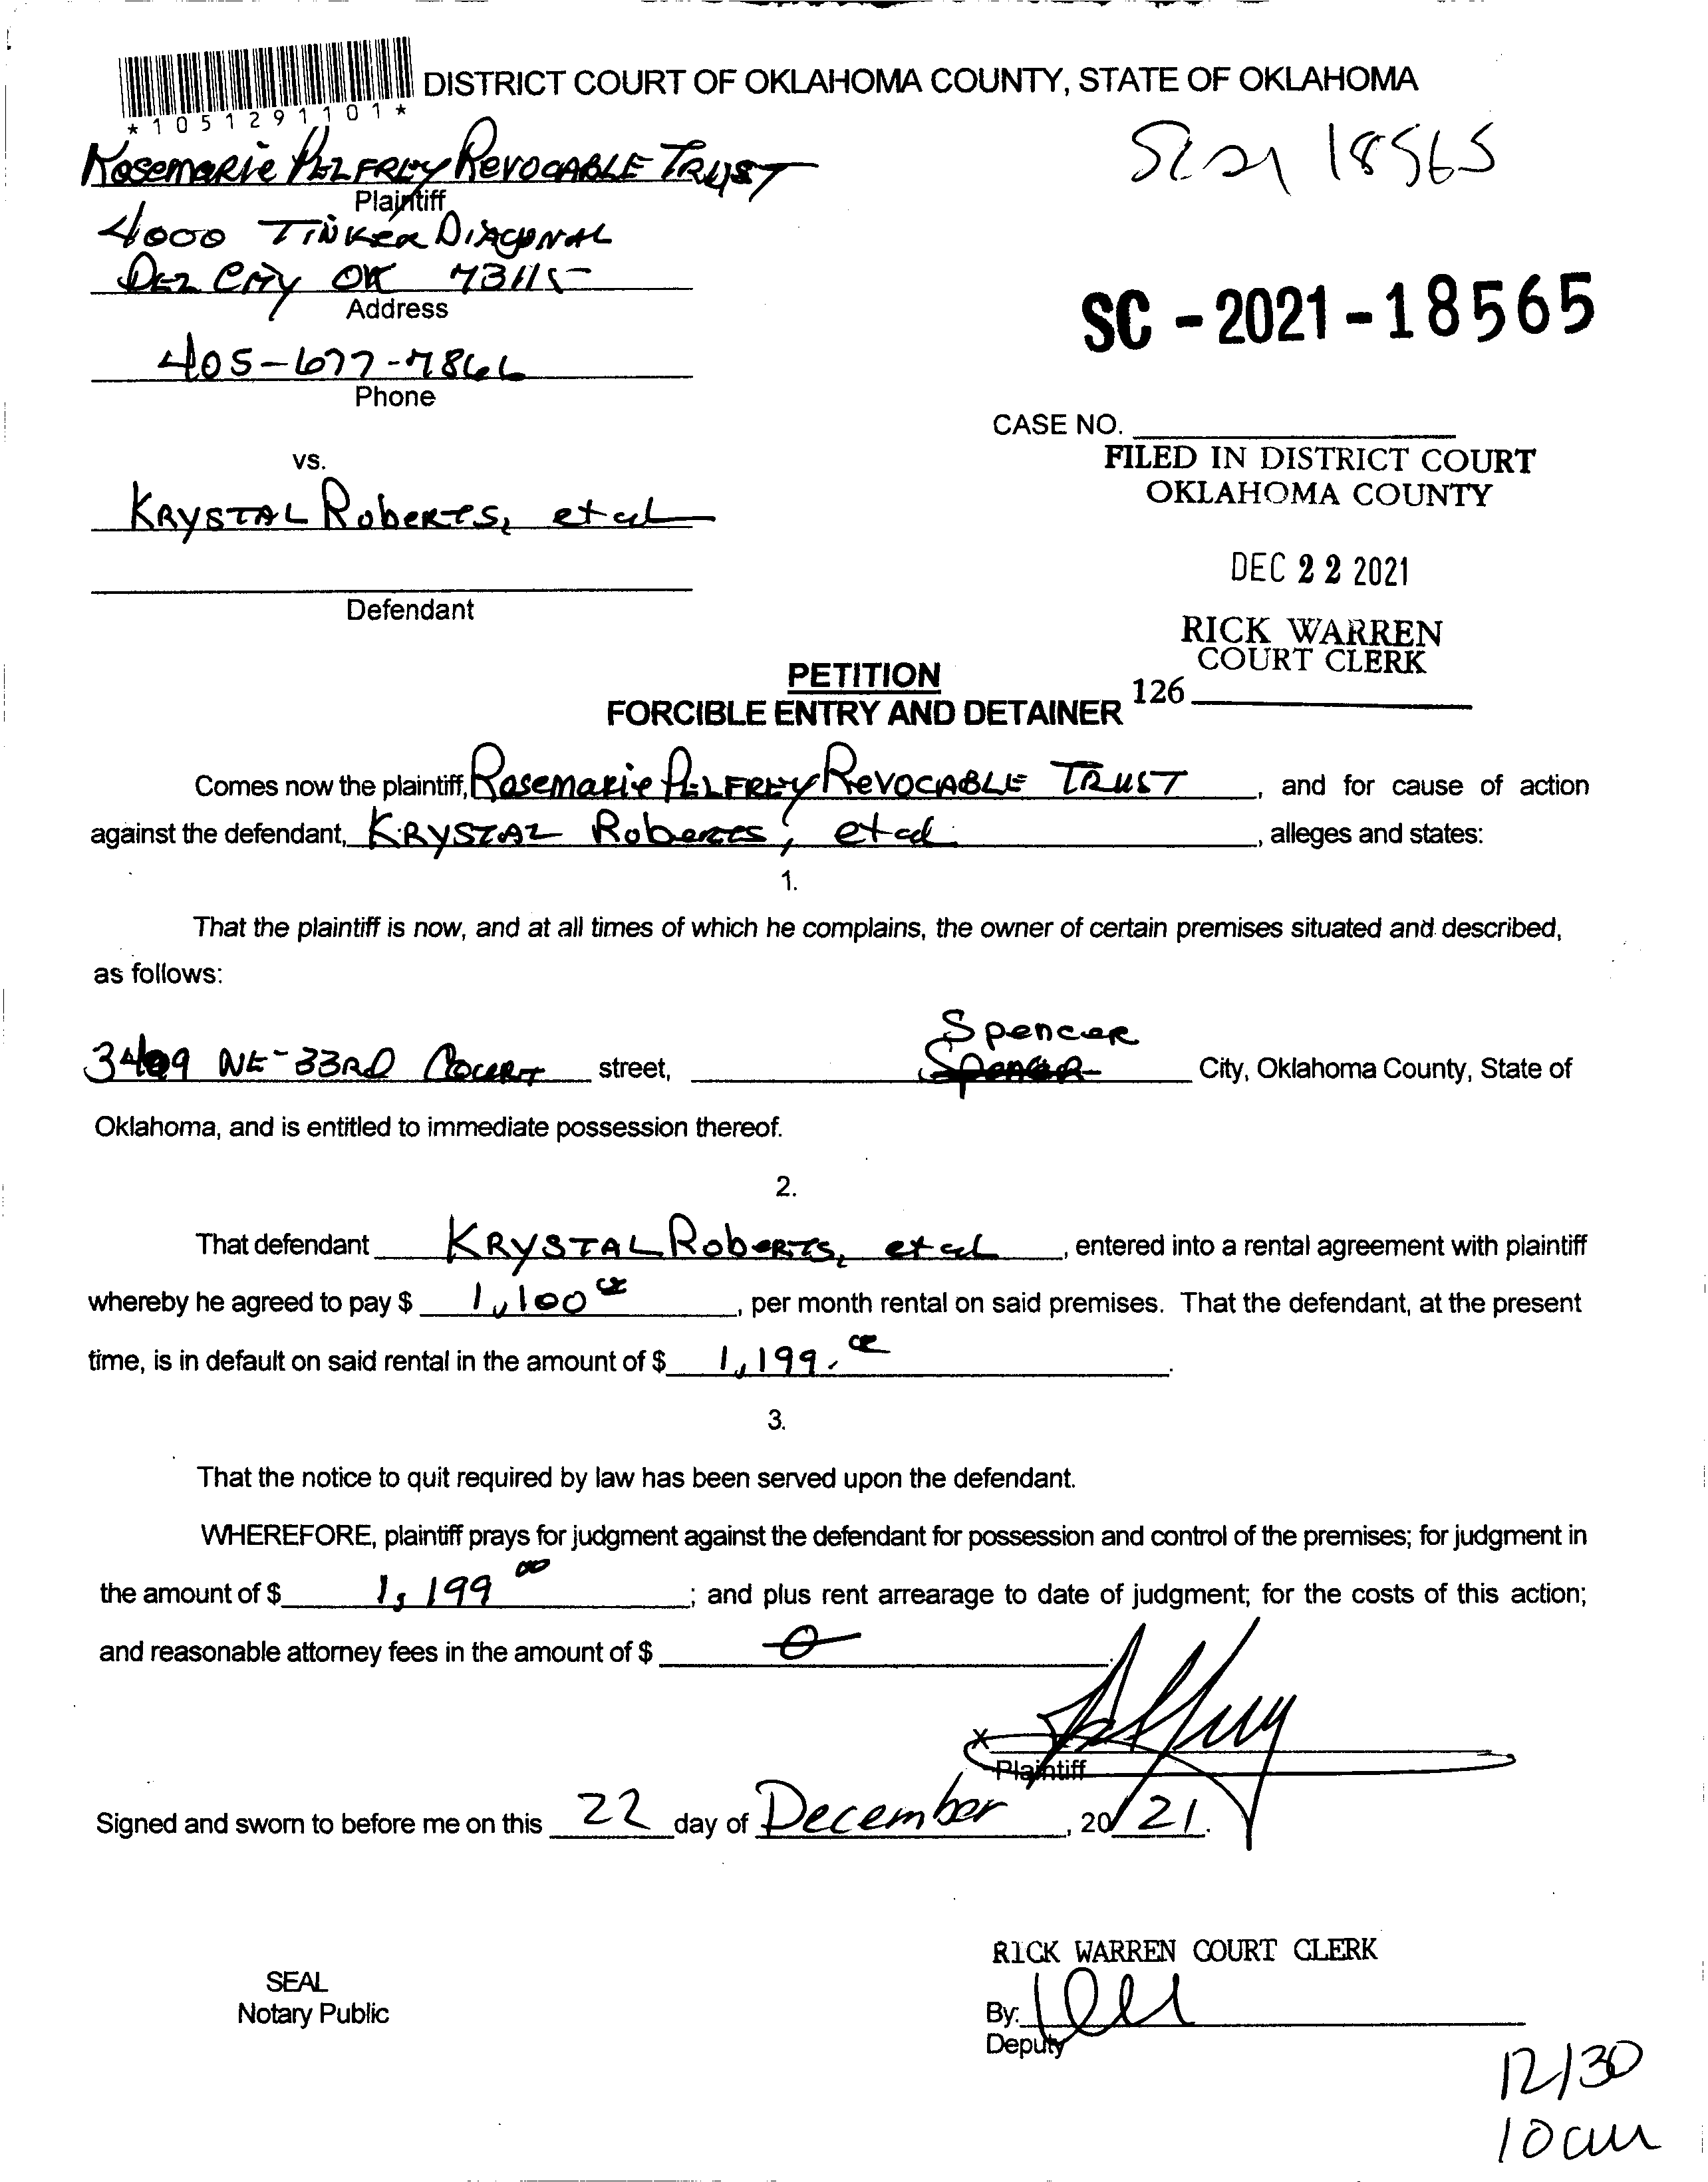 DISTRICT COURT OF OKLAHOMA COUNTY, STATE OF OKLAHOMA
*1051291101*
Rosemarie PELFREY REVOCABLE TRUST
Plaintiff
SC 21 18565
4000 TINKER DIAGONAL
DEL CITY OK 73115
Address
SC - 2021 - 18565
405-677-7866
Phone
CASE NO.
FILED IN DISTRICT COURT
OKLAHOMA COUNTY
vs.
KRYSTAL ROBERTS, et al
DEC 22 2021
Defendant
RICK WARREN
COURT CLERK
126
PETITION
FORCIBLE ENTRY AND DETAINER
Comes now the plaintiff, Rosemarie PELFREY REVOCABLE TRUST, and for cause of action
against the defendant, KRYSTAL Roberts, et al, alleges and states:
1.
That the plaintiff is now, and at all times of which he complains, the owner of certain premises situated and described,
as follows:
Spencer
3409 NE 33RD Court street, Spencer City, Oklahoma County, State of
Oklahoma, and is entitled to immediate possession thereof.
2.
That defendant KRYSTAL ROBERTS, et al, entered into a rental agreement with plaintiff
whereby he agreed to pay $ 1,100 00, per month rental on said premises. That the defendant, at the present
time, is in default on said rental in the amount of $ 1,199.00.
3.
That the notice to quit required by law has been served upon the defendant.
WHEREFORE, plaintiff prays for judgment against the defendant for possession and control of the premises; for judgment in
the amount of $ 1,199 00; and plus rent arrearage to date of judgment; for the costs of this action;
and reasonable attorney fees in the amount of $ 0.
X
Plaintiff
Signed and sworn to before me on this 22 day of December, 20 21.
RICK WARREN COURT CLERK
SEAL
Notary Public
By:
Deputy
12/30
10am